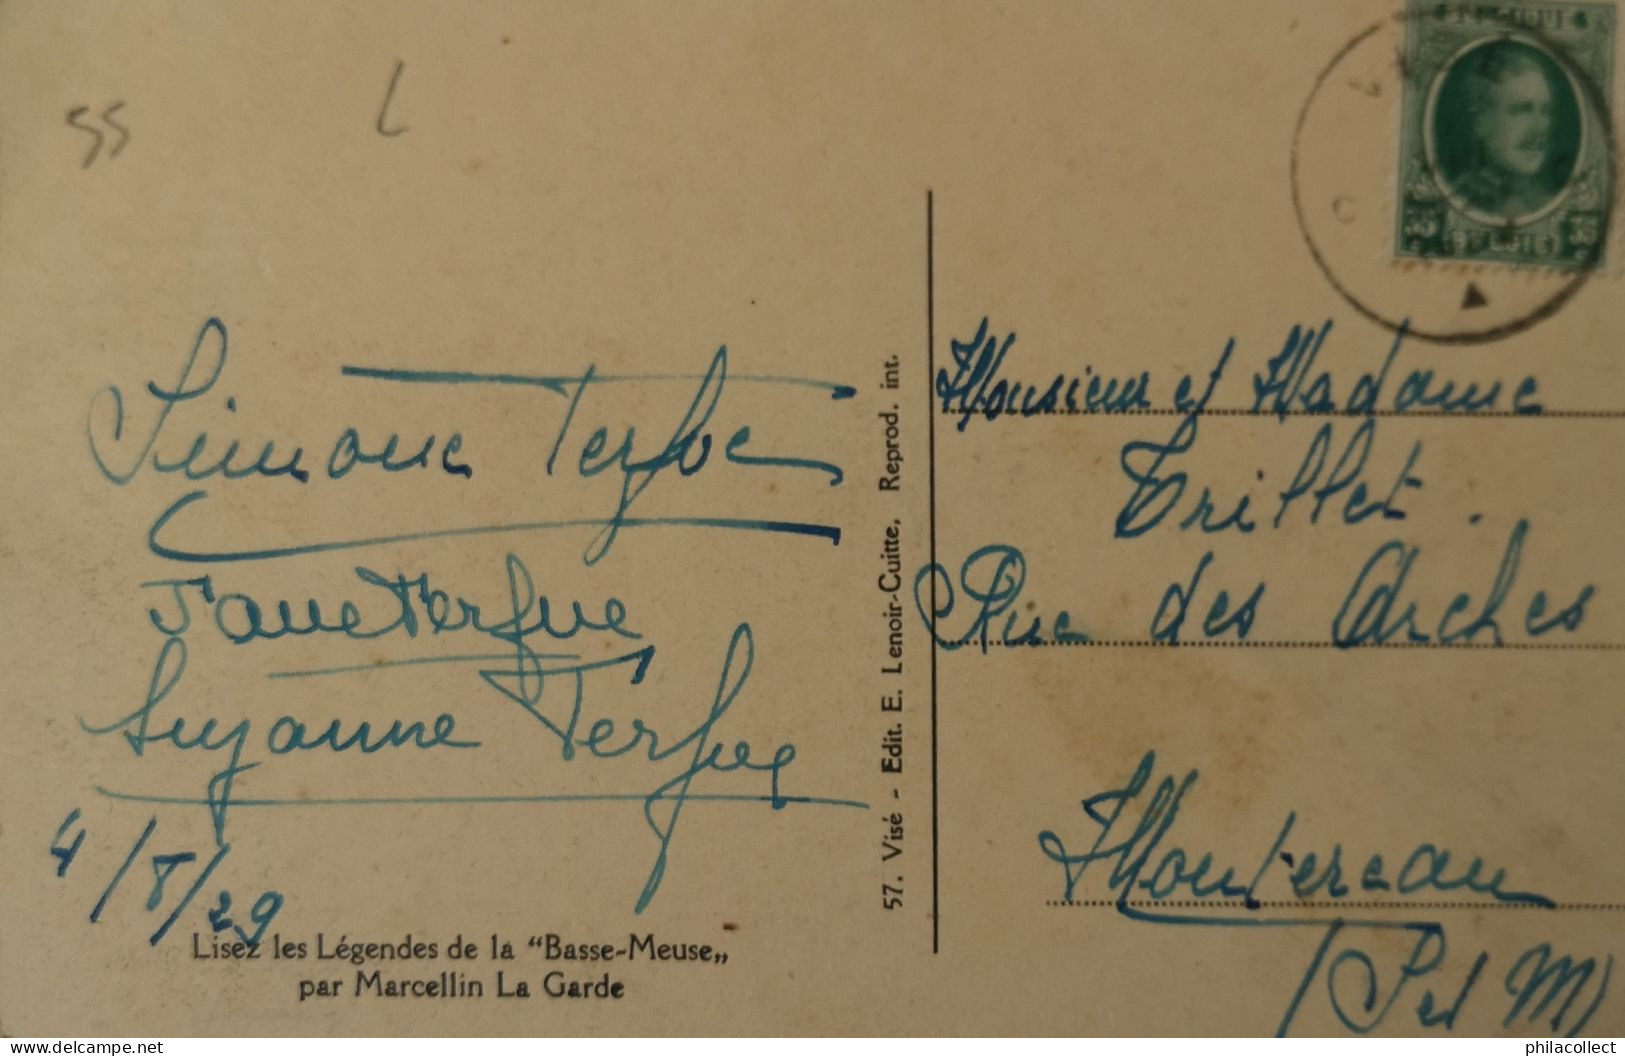 55
L
BELGIQUE
35 BELGIË 35
Simone Terfve
Jane Terfve
Suzanne Terfve
4/8/29
Lisez les Légendes de la “Basse-Meuse„
par Marcellin La Garde
57. Visé - Edit. E. Lenoir-Cuitte, Reprod. int.
Monsieur et Madame
Trillet.
Rue des Arches
Montereau
(S et M)
philacollect